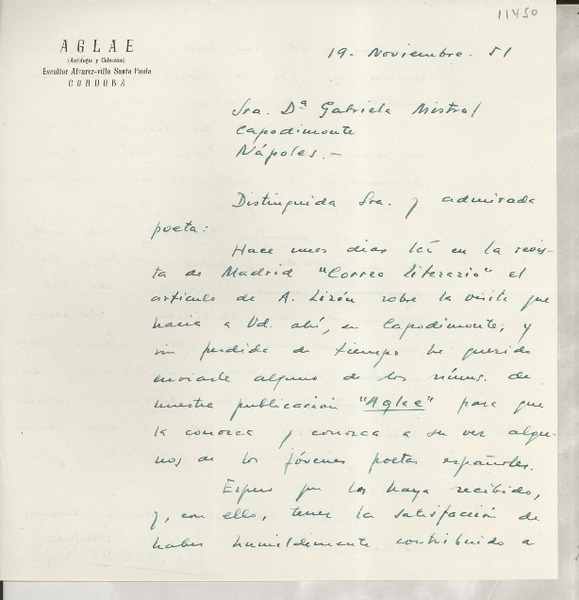 11450
AGLAE
(Antología y Colección)
Escultor Alvarez-villa Santa Paula
CORDOBA
19. Noviembre. 51
Sra. Dª Gabriela Mistral
Capodimonte
Nápoles.-
Distinguida Sra. y admirada
poeta:
Hace unos dias leí en la revis-
ta de Madrid "Correo Literario" el
artículo de A. Lizón sobre la visita que
hacia a Vd. ahí, en Capodimonte, y
sin perdida de tiempo he querido
enviarle alguno de los núms. de
nuestra publicación "Aglae" para que
la conozca y conozca a su vez algu-
nos de los jóvenes poetas españoles.
Espero que los haya recibido,
y, con ello, tener la satisfacción de
haber humildemente contribuido a